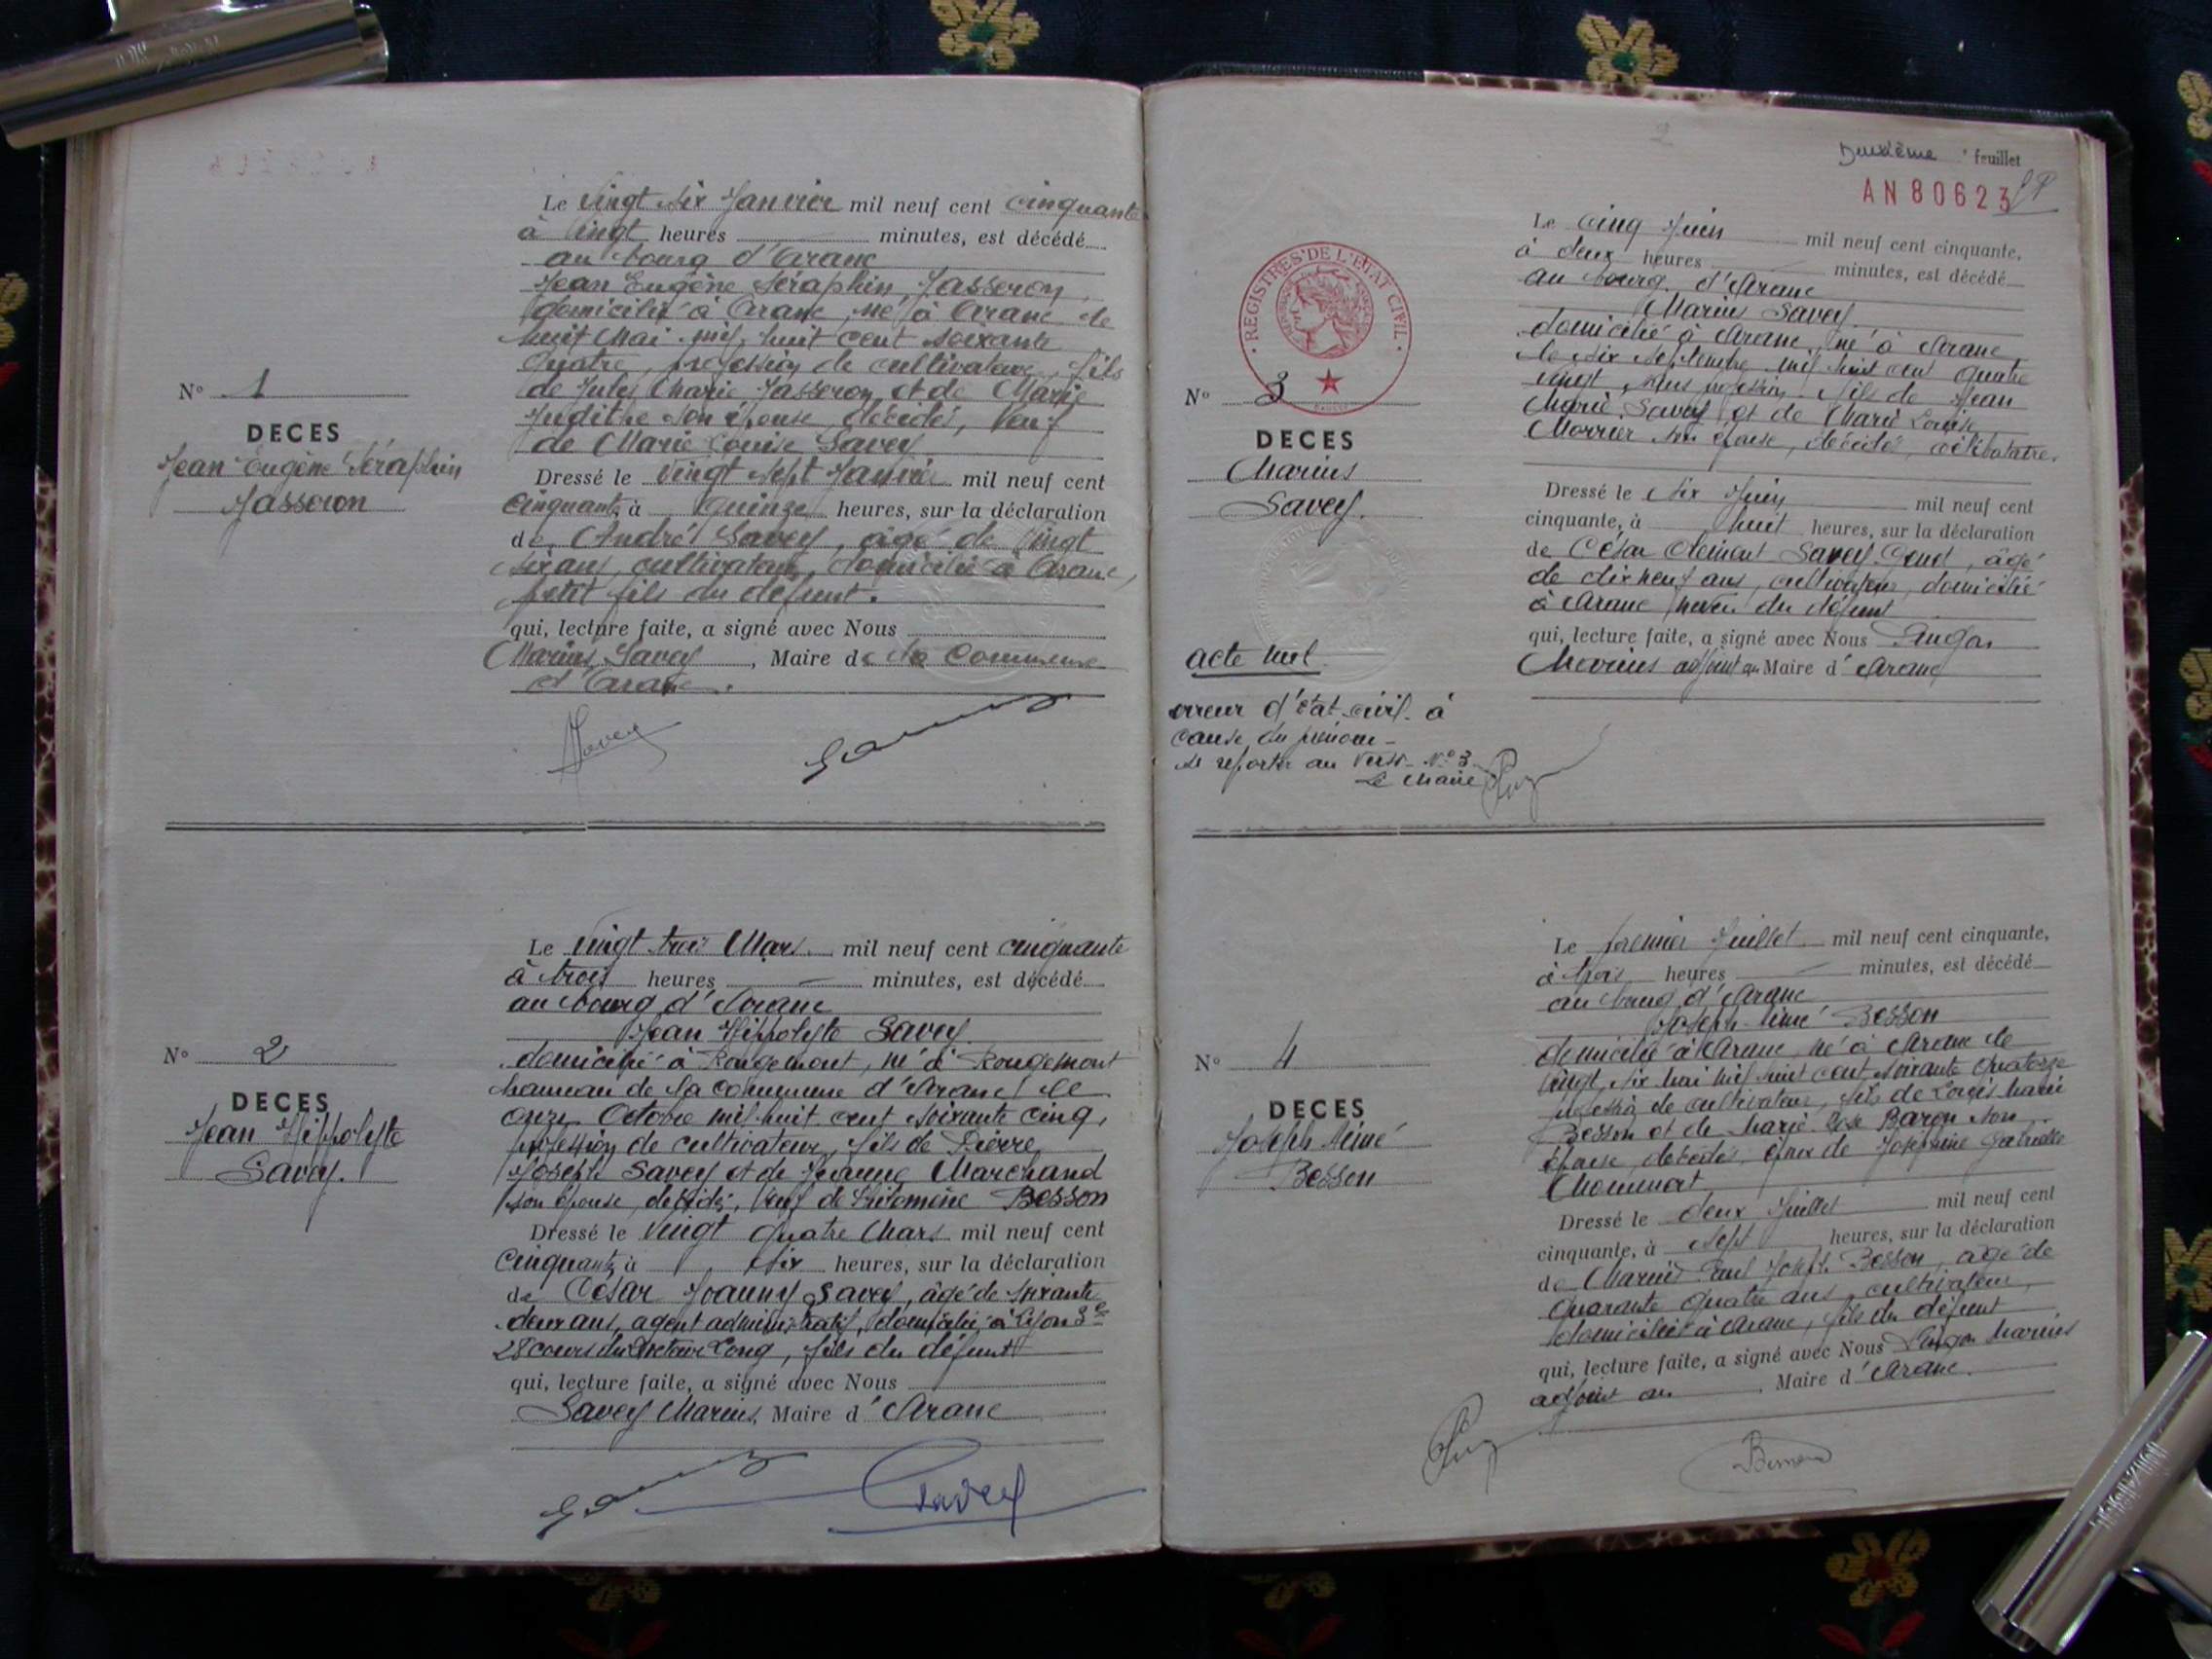 Le vingt six Janvier mil neuf cent cinquante
à vingt heures minutes, est décédé
au bourg d'Aranc
Jean Eugène Séraphin Jasseron,
domicilié à Aranc, né à Aranc le
huit Mai mil huit cent soixante
quatre, profession de cultivateur, fils
de Jules Marie Jasseron et de Marie
Judithe son épouse, décédés, Veuf
de Marie Louise Savey
Dressé le vingt sept Janvier mil neuf cent
cinquante à quinze heures, sur la déclaration
de André Savey, âgé de vingt
six ans, cultivateur, domicilié à Aranc,
petit fils du défunt.
qui, lecture faite, a signé avec Nous
Marius Savey, Maire de la Commune
d'Aranc.
N° 1
DECES
Jean Eugène Séraphin
Jasseron
Savey
Le vingt trois Mars mil neuf cent cinquante
à trois heures minutes, est décédé
au bourg d'Aranc
Jean Hippolyte Savey
domicilié à Rougemont, né à Rougemont
hameau de la commune d'Aranc le
onze Octobre mil huit cent soixante cinq,
profession de cultivateur, fils de Pierre
Joseph Savey et de Jeanne Marchand
son épouse, décédés, Veuf de Philomène Besson
Dressé le vingt quatre Mars mil neuf cent
cinquante à six heures, sur la déclaration
de César Joanny Savey, âgé de soixante
deux ans, agent administratif, domicilié à Lyon 3e
28 cours du Docteur Long, fils du défunt
qui, lecture faite, a signé avec Nous
Savey Marius, Maire d'Aranc
N° 2
DECES
Jean Hippolyte
Savey.
Savey
Deuxième feuillet
AN80623
REGISTRES DE L'ETAT CIVIL
Le cinq Juin mil neuf cent cinquante,
à deux heures minutes, est décédé
au bourg d'Aranc
Marius Savey
domicilié à Aranc, né à Aranc
le six Septembre mil huit cent quatre
vingt, sans profession, fils de Jean
Marie Savey et de Marie Louise
son épouse, décédés, célibataire.
Dressé le six Juin mil neuf cent
cinquante, à huit heures, sur la déclaration
de César Clément Savey, âgé
de dix neuf ans, cultivateur, domicilié
à Aranc neveu du défunt
qui, lecture faite, a signé avec Nous
Marius adjoint au Maire d'Aranc
N° 3
DECES
Marius
Savey.
acte nul
erreur d'état civil à
cause du prénom
se reporter au verso N° 3
Le Maire
Le premier Juillet mil neuf cent cinquante,
à trois heures minutes, est décédé
au bourg d'Aranc
Joseph Aimé Besson
domicilié à Aranc, né à Aranc le
vingt six mai mil huit cent soixante quatorze
profession de cultivateur, fils de Louis Marie
Besson et de Marie Rose Baron son
épouse, décédés, époux de Joséphine
Dressé le deux Juillet mil neuf cent
cinquante, à sept heures, sur la déclaration
de Marius Paul Joseph Besson, âgé de
quarante quatre ans, cultivateur,
domicilié à Aranc, fils du défunt
qui, lecture faite, a signé avec Nous Marius
adjoint au Maire d'Aranc.
N° 4
DECES
Joseph Aimé
Besson